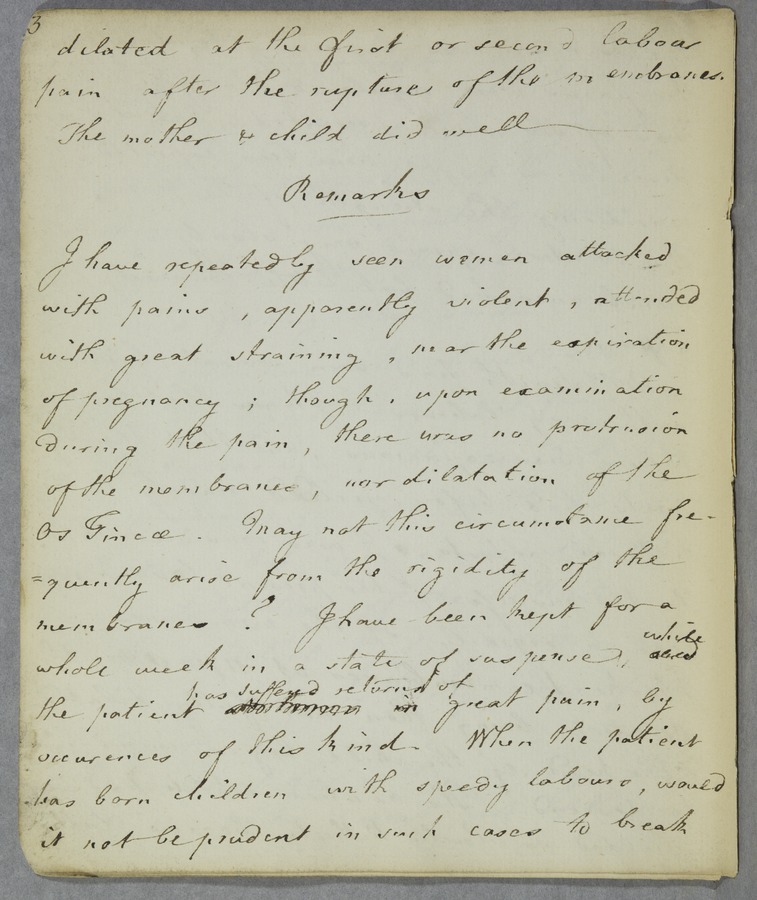 3
dilated at the first or second labour
pain after the rupture of the membranes.
The mother & child did well
Remarks
I have repeatedly seen women attacked
with pains, apparently violent, attended
with great straining, near the expiration
of pregnancy; though, upon examination
during the pain, there was no protrusion
of the membranes, nor dilatation of the
Os Tincæ. May not this circumstance fre-
=quently arise from the rigidity of the
membranes? I have been kept for a
whole week in a state of suspense, while
has suffered returns of
the patient in great pain, by
occurences of this kind. When the patient
has born children with speedy labours, would
it not be prudent in such cases to break